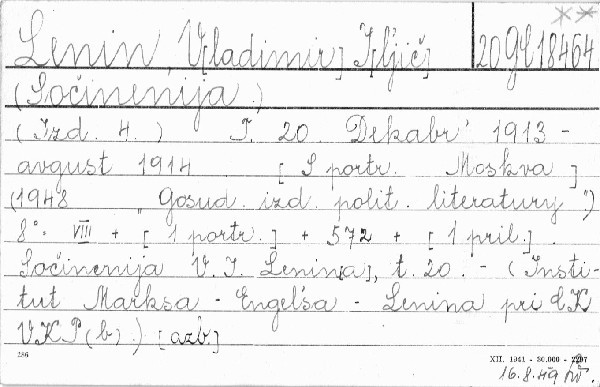 Lenin, V[ladimir] I[l'jič]
20 Gł 18464
(Sočinenija.)
(Izd. 4.) T. 20 Dekabr' 1913 -
avgust 1914 [S portr. Moskva]
(1948 "Gosud. izd. polit. literatury")
8°. VIII + [1 portr.] + 572 + [1 pril.].
Sočinenija V. I. Lenin[a], t. 20. - (Insti-
tut Marksa - Engel'sa - Lenina pri CK
VKP(b).) [azb]
286
XII. 1941 - 30.000 - 2207
16.8.49